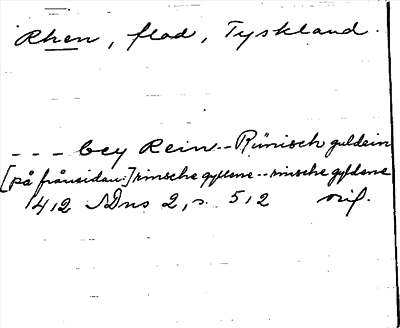 Rhen, flod, Tyskland.
--- bey Rein -- Rünisch guldein
[på frånsidan:] rinsche gyllene -- rinsche gyldene
1412 SDns 2, s. 512 orig.